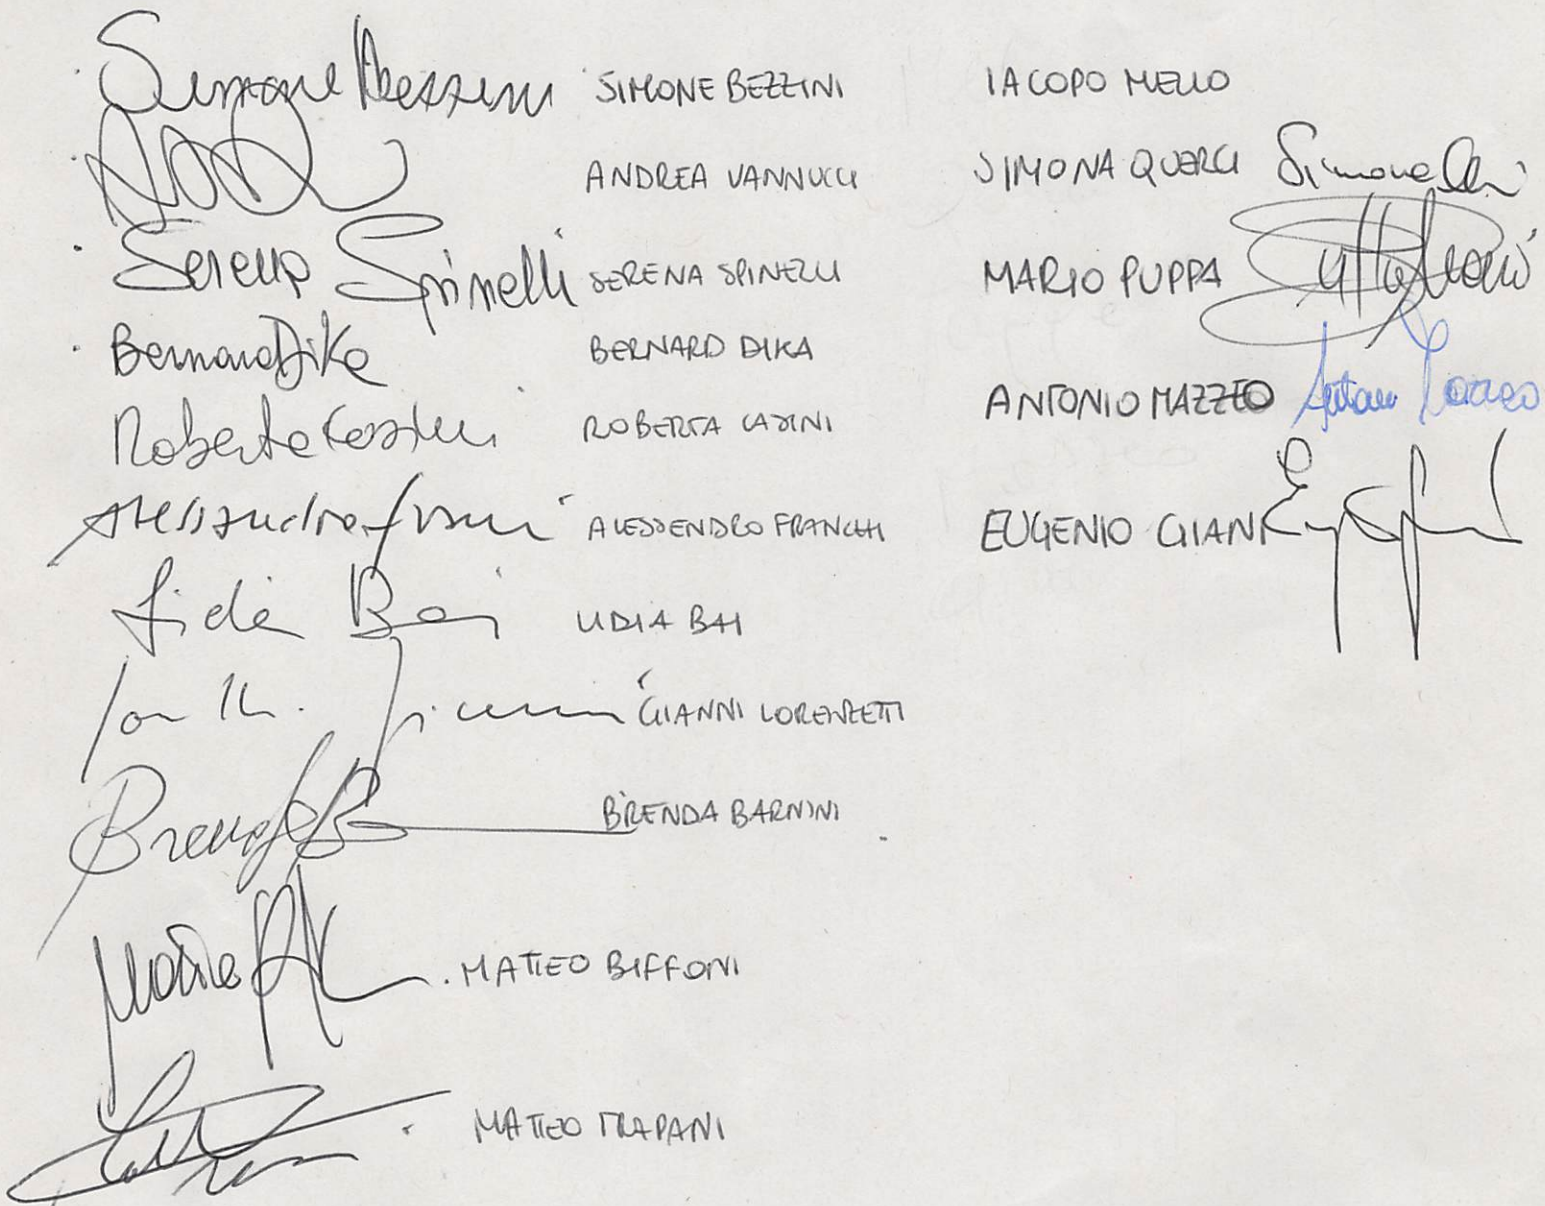 Simone Bezzini SIMONE BEZZINI
ANDREA VANNUCCI
Serena Spinelli SERENA SPINELLI
Bernard Dika BERNARD DIKA
Roberta Casini ROBERTA CASINI
Alessandro Franchi ALESSENDRO FRANCHI
Lidia Bai LIDIA BAI
GIANNI LORENZETTI
Brenda BRENDA BARNINI
Matteo MATTEO BIFFONI
MATTEO TRAPANI
IACOPO MELIO
SIMONA QUERCI Simona
MARIO PUPPA
ANTONIO MAZZEO Antonio Mazzeo
EUGENIO GIANI